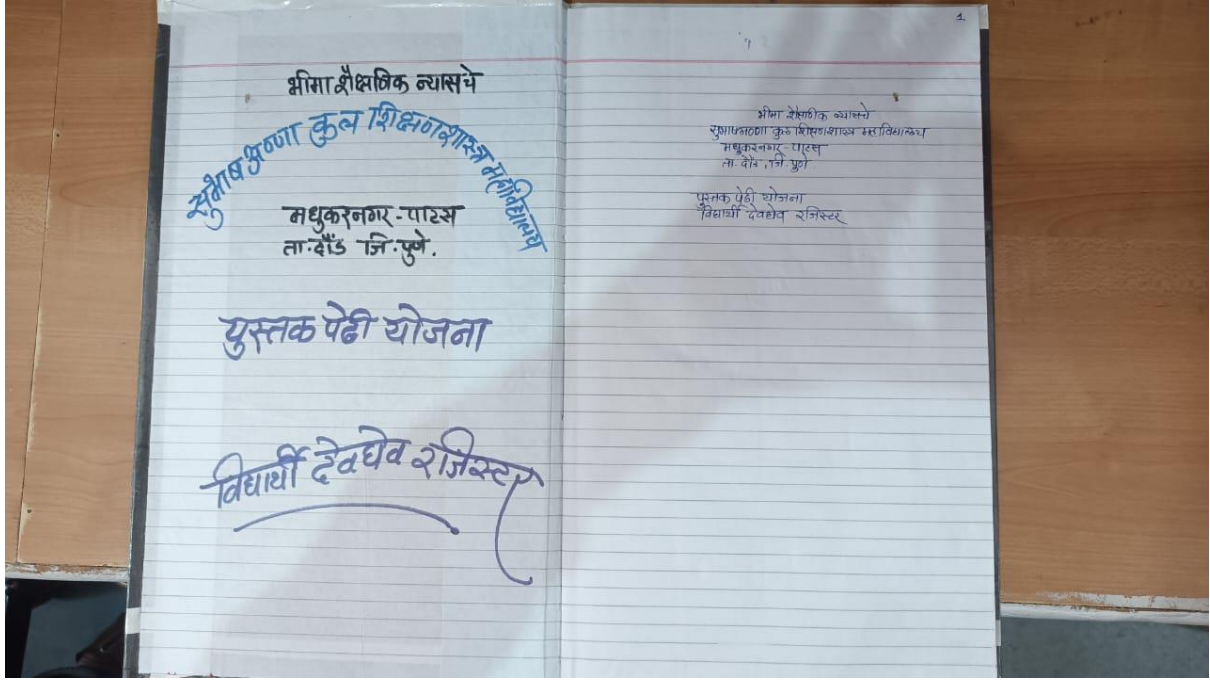 भीमा शैक्षणिक न्यासचे
सुभाष अण्णा कुल शिक्षणशास्त्र महाविद्यालय
मधुकरनगर - पाटस
ता. दौंड जि. पुणे.
पुस्तक पेढी योजना
विद्यार्थी देवघेव रजिस्टर
1
भीमा शैक्षणिक न्यासचे
सुभाषअण्णा कुल शिक्षणशास्त्र महाविद्यालय
मधुकरनगर - पाटस
ता. दौंड, जि. पुणे
पुस्तक पेढी योजना
विद्यार्थी देवघेव रजिस्टर